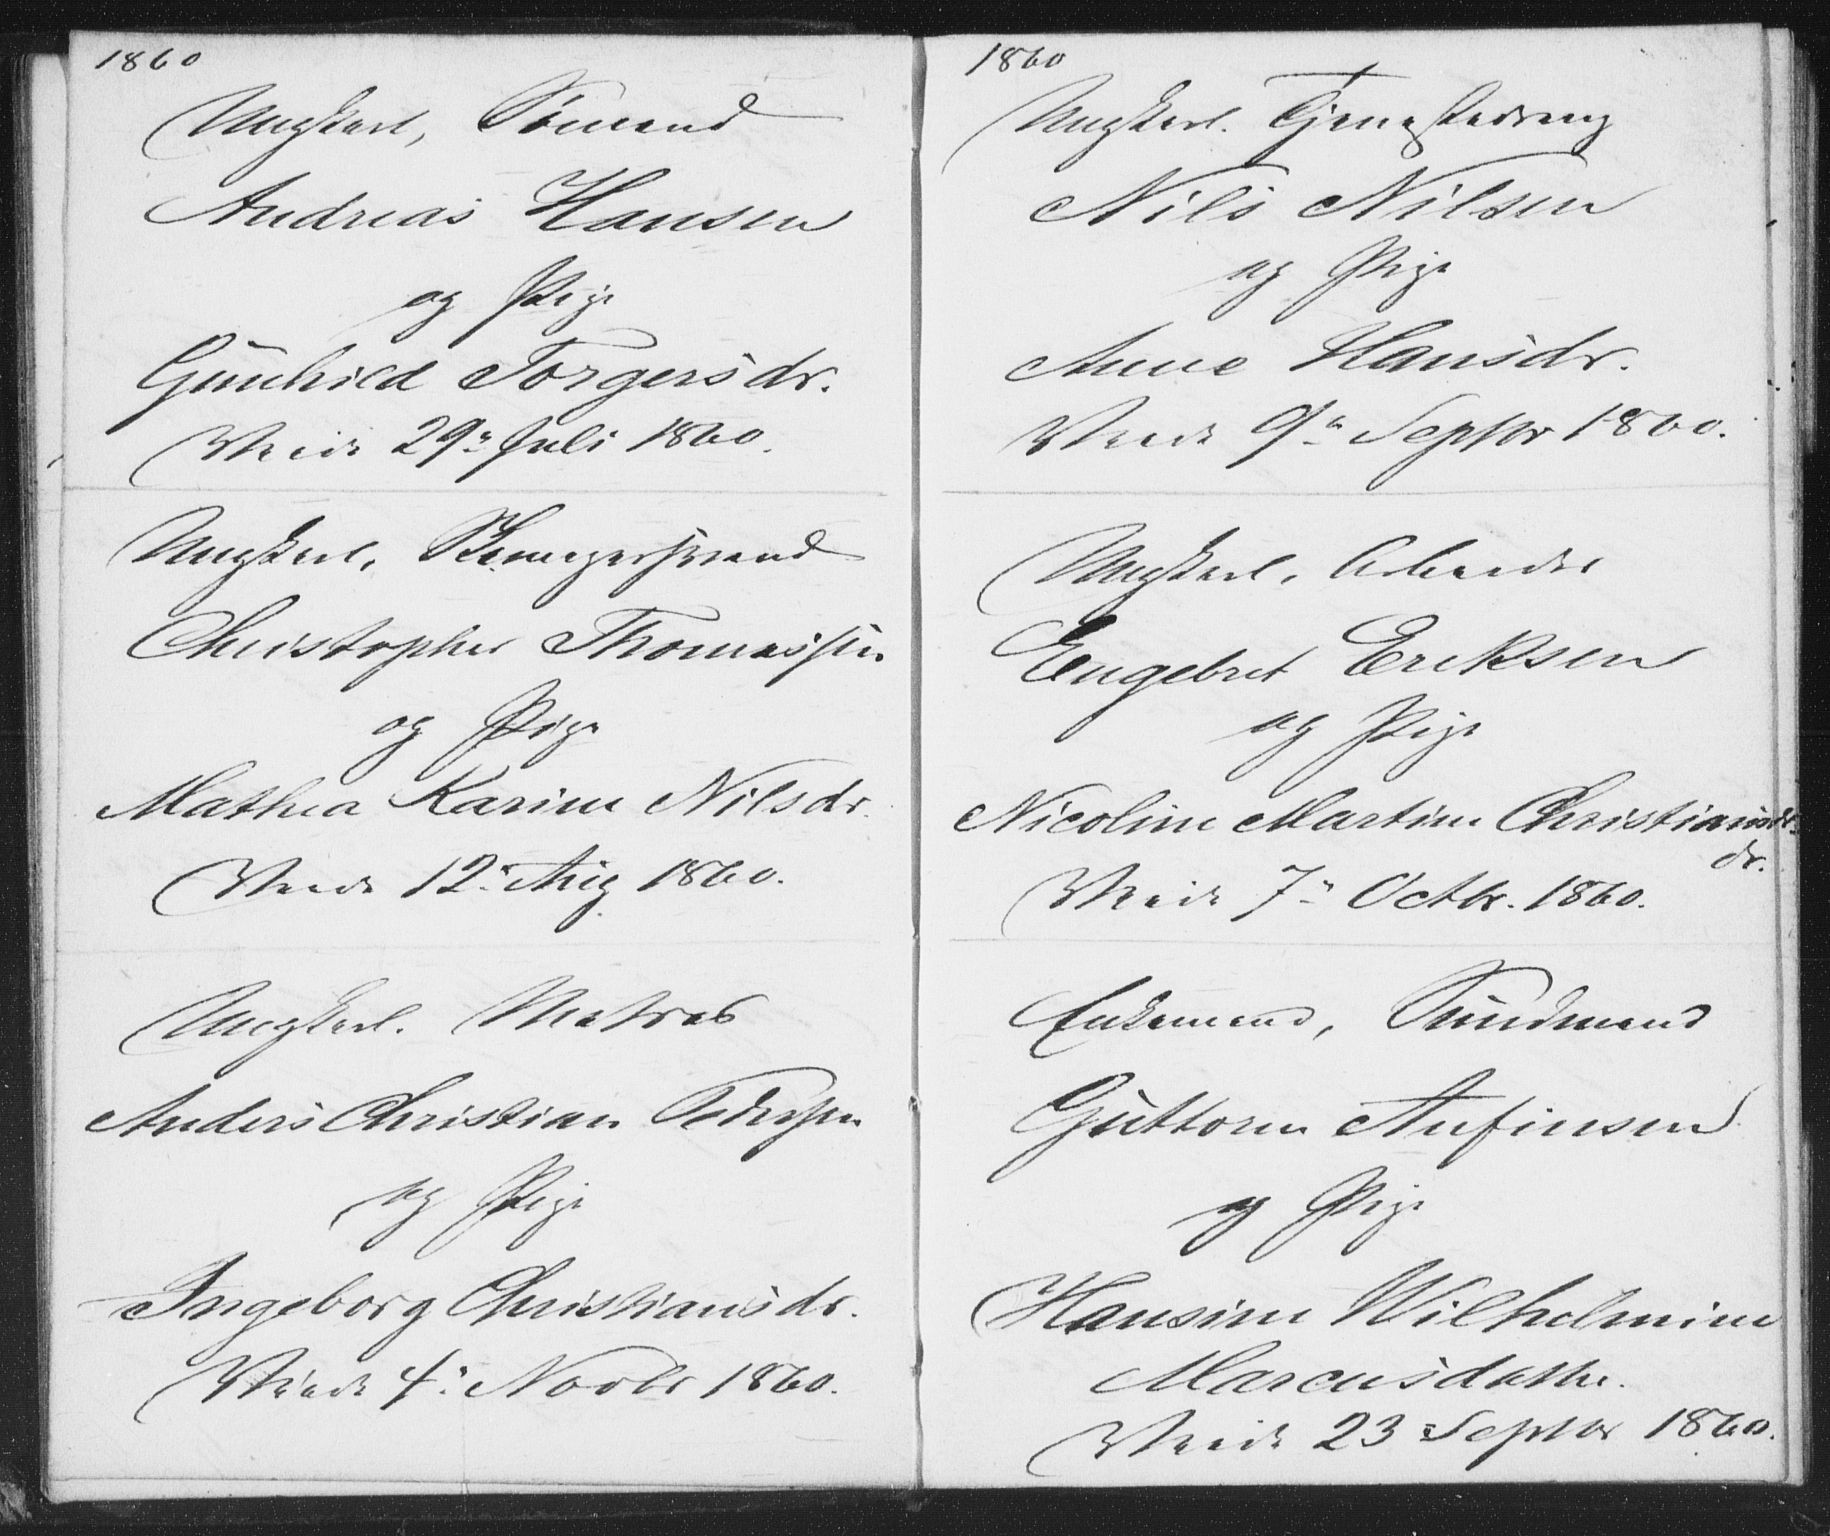 1860
Ungkarl, Sømand
Andreas Hansen
og Pige
Gunhild Torgersdr.
Viede 29. Juli 1860.
Ungkarl,
Christopher Thomassen
og Pige
Mathea Karine Nilsdr.
Viede 12. Aug 1860.
Ungkarl. Matros
Anders Christian Pedersen
og Pige
Ingeborg Christiansdr.
Viede 4. Novbr 1860.
1860
Ungkarl. Tjenestedreng
Nils Nilsen
og Pige
Anne Hansdr.
Viede 9. Septbr 1860.
Ungkarl, Arbeider
Engebret Eriksen
og Pige
Nicoline Martine Christiansdr.
dr.
Viede 7. Octbr. 1860.
Enkemand,
Guttorm Anfinsen
og Pige
Hansine Wilhelmine
Marcusdatter.
Viede 23 Septbr 1860.